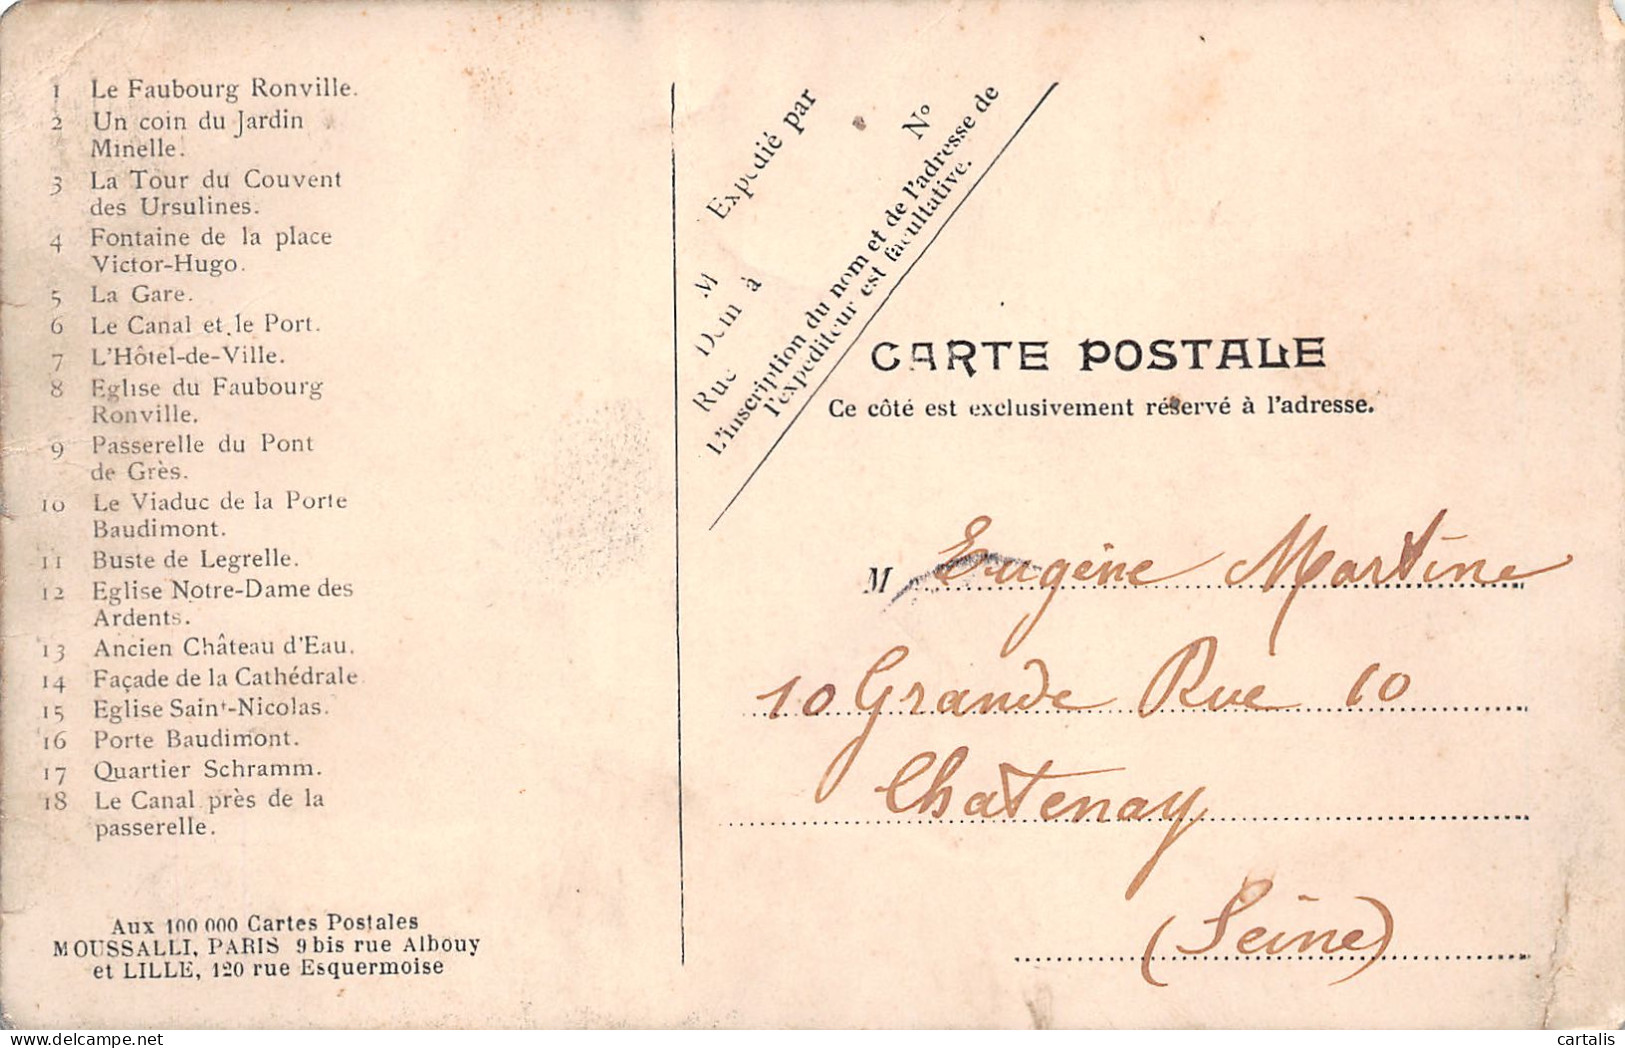 1 Le Faubourg Ronville.
2 Un coin du Jardin
Minelle.
3 La Tour du Couvent
des Ursulines.
4 Fontaine de la place
Victor-Hugo.
5 La Gare.
6 Le Canal et le Port.
7 L'Hôtel-de-Ville.
8 Eglise du Faubourg
Ronville.
9 Passerelle du Pont
de Grès.
10 Le Viaduc de la Porte
Baudimont.
11 Buste de Legrelle.
12 Eglise Notre-Dame des
Ardents.
13 Ancien Château d'Eau.
14 Façade de la Cathédrale
15 Eglise Saint-Nicolas.
16 Porte Baudimont.
17 Quartier Schramm.
18 Le Canal près de la
passerelle.
Aux 100 000 Cartes Postales
MOUSSALLI, PARIS 9 bis rue Albouy
et LILLE, 120 rue Esquermoise
Expédié par
M
Dem à
Rue Nº
L'inscription du nom et de l'adresse de
l'expéditeur est facultative.
CARTE POSTALE
Ce côté est exclusivement réservé à l'adresse.
M Eugène Martine
10 Grande Rue 10
Chatenay
(Seine)
cartalis